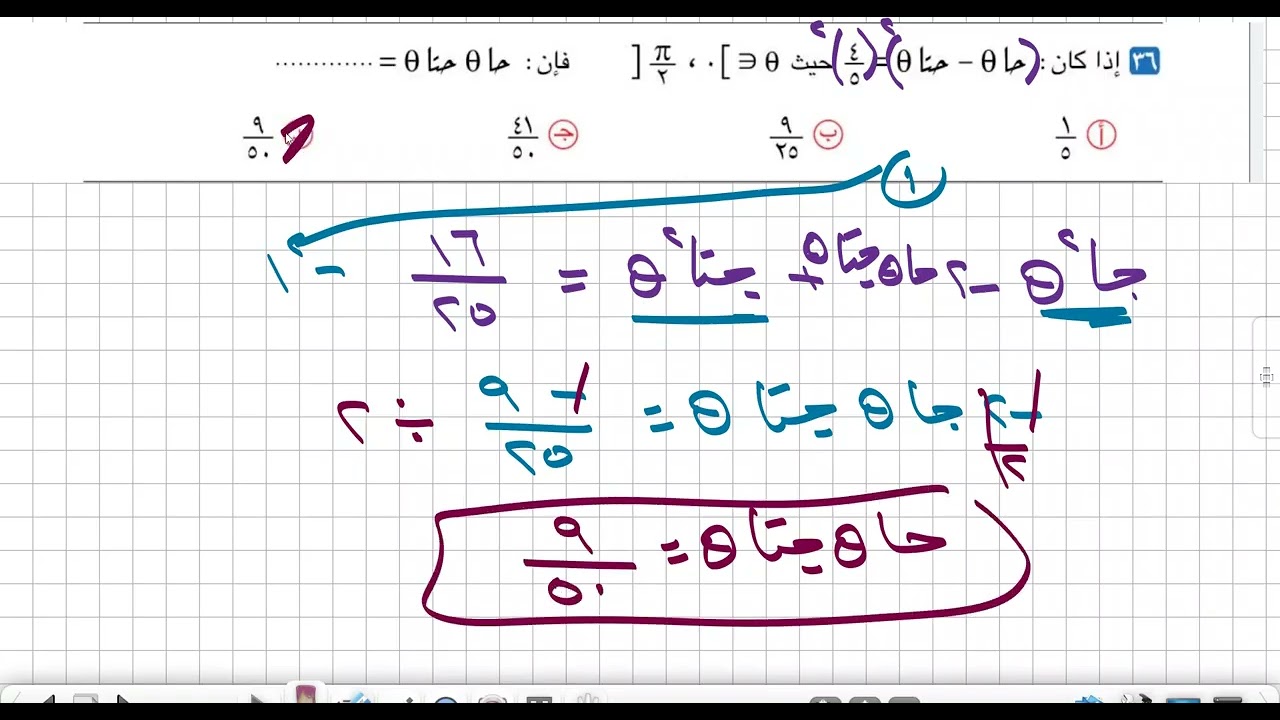 ٣٦ إذا كان : (حا θ − حتا θ)٢ = (٤/٥)٢ حيث θ ∈ ]٠ ، π/٢[ فإن : حا θ حتا θ = .............
أ ١/٥ ب ٩/٢٥ جـ ٤١/٥٠ ٩/٥٠
١
جا٢ θ − ٢ حا θ جتا θ + جتا٢ θ = ١٦/٢٥ − ١
−٢/٢ جا θ جتا θ = −٩/٢٥ ÷ ٢
حا θ جتا θ = ٩/٥٠